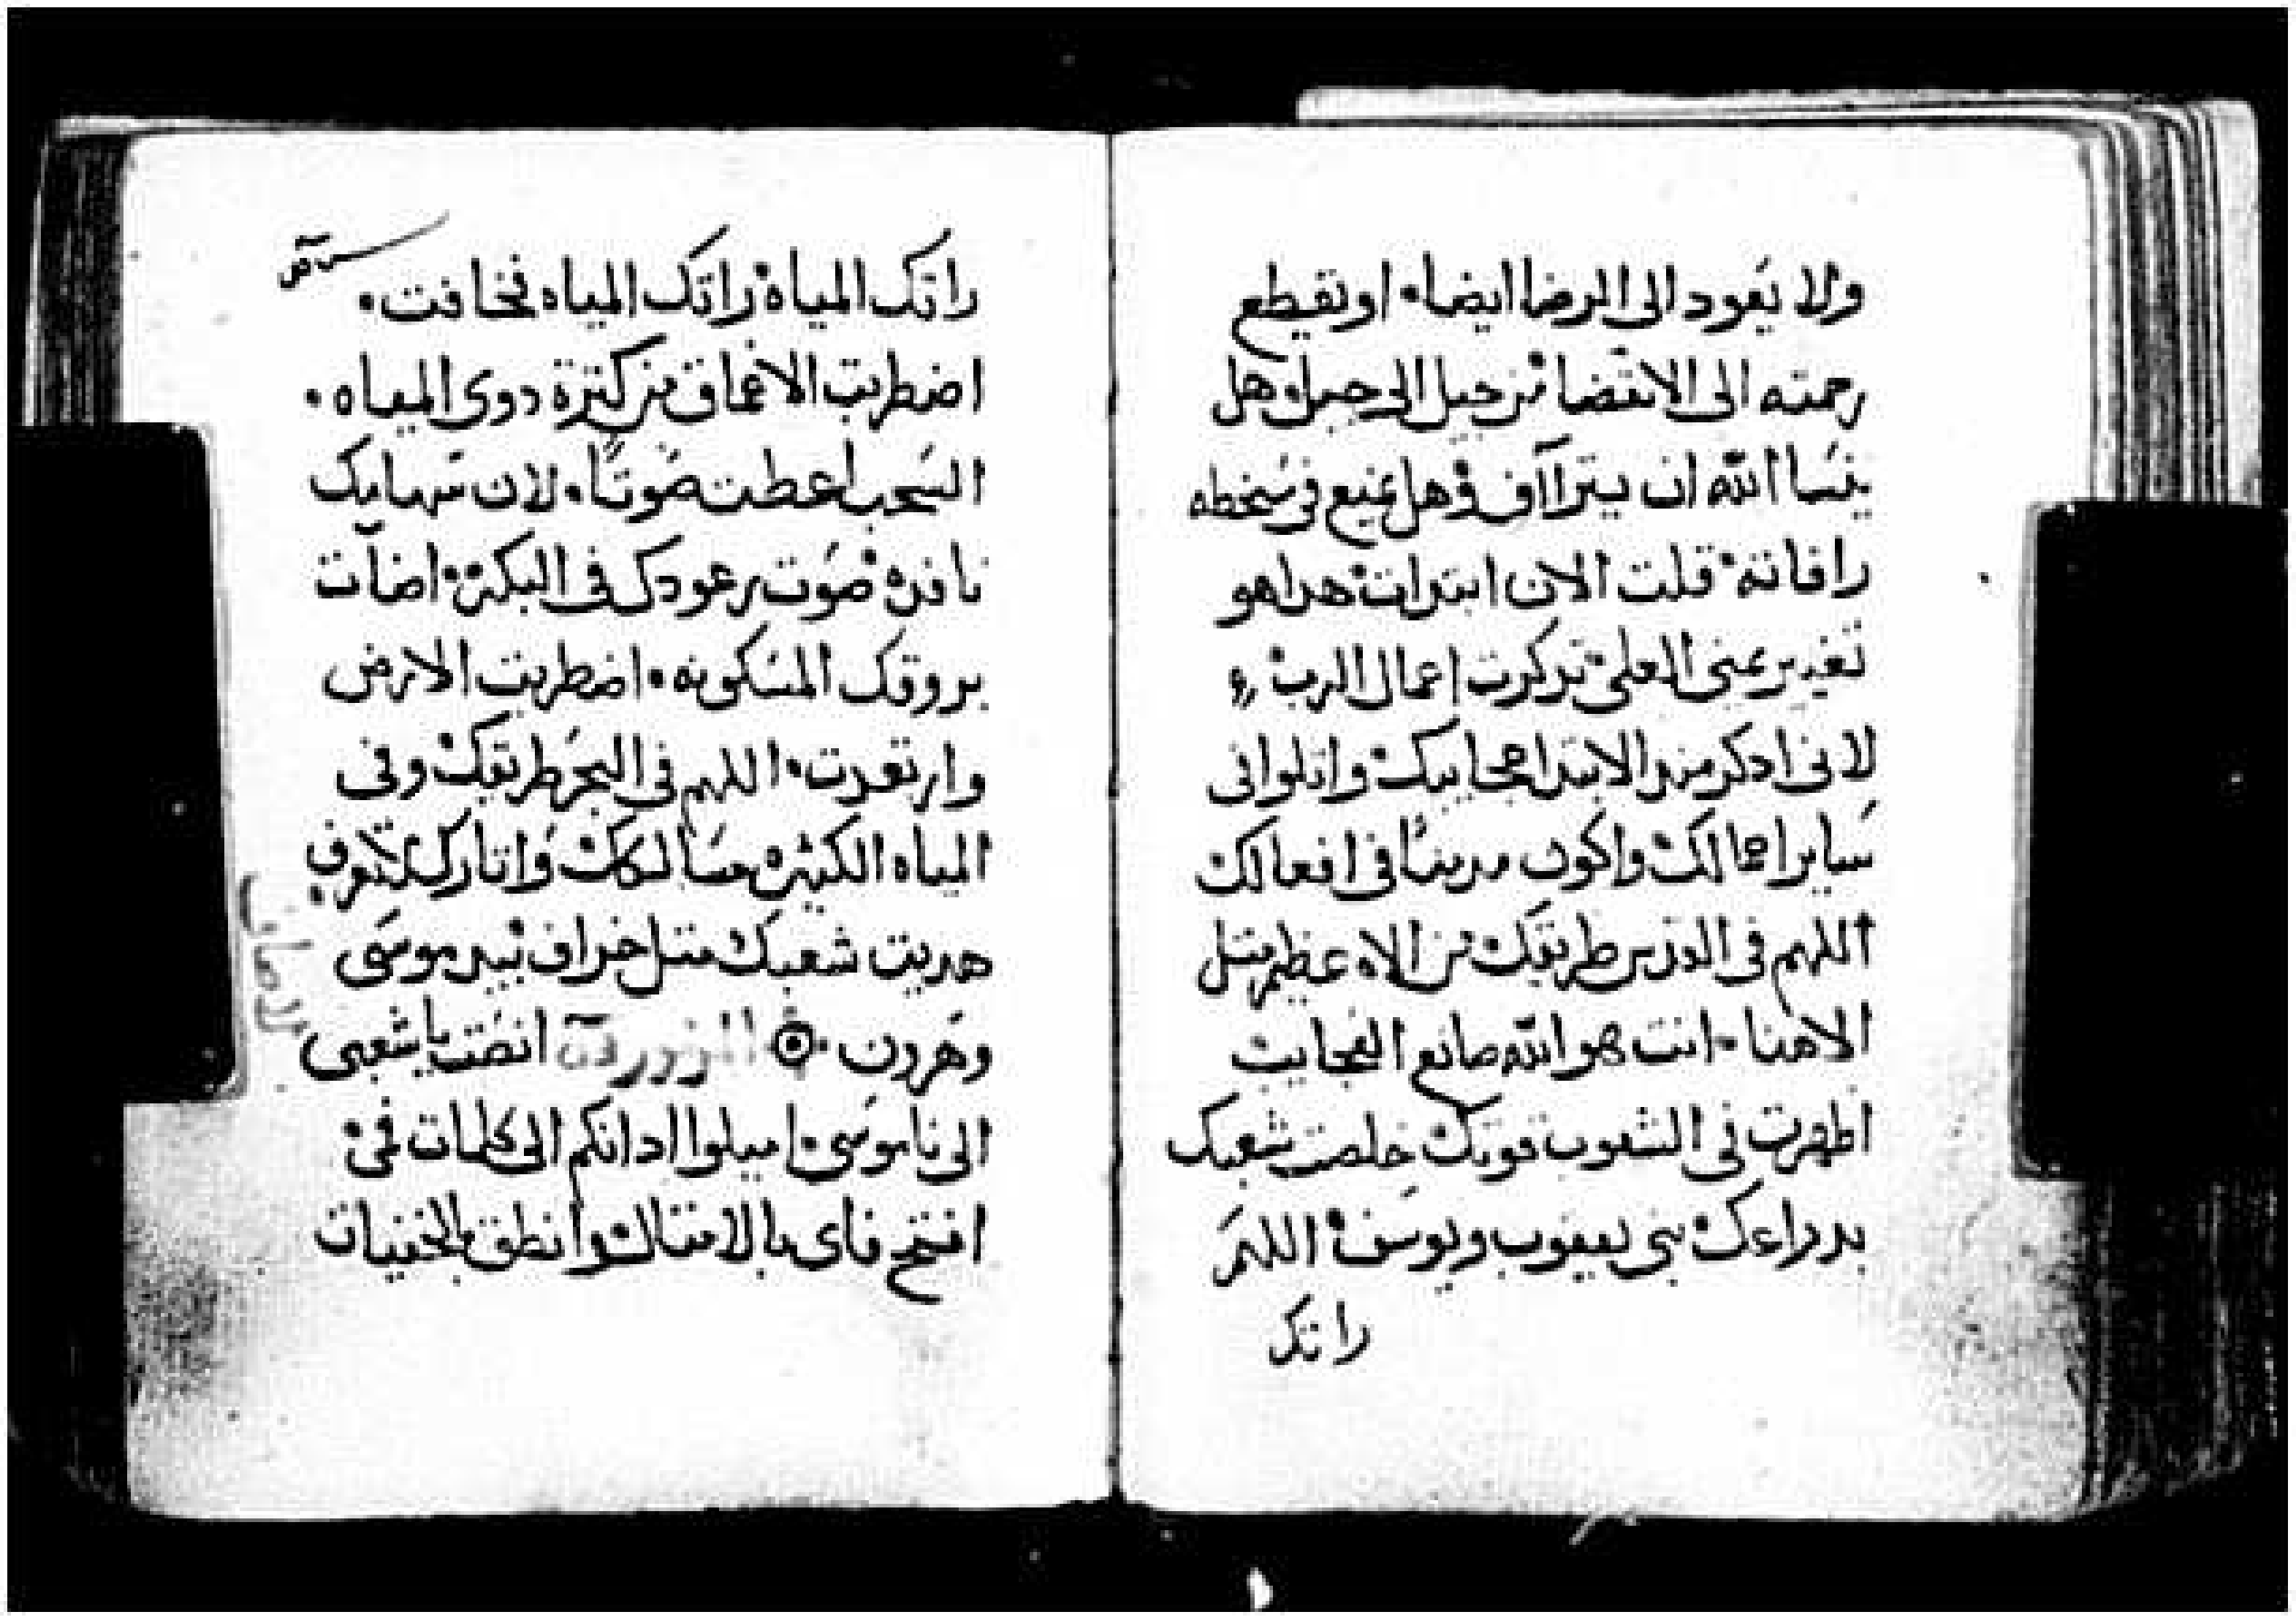 ولا يعود الى الرضا ايضا. او يقطع
رحمته الى الانقضا من جيل الى جيل وهل
ينسا الله ان يتراآف وهل يمنع في سخطه
رافاته قلت الان ابتدات هدا هو
تغيير يمنى العلى تدكرت اعمال الرب
لانى ادكر مند الابتدا عجايبك واتلوا فى
ساير اعمالك واكون مدربنا فى افعالك
اللهم فى القدس طريقك من الاه عظيم متل
الاهنا. انت هو الله صانع العجايب
اظهرت فى الشعوب قوتك خلصت شعبك
بدراعك بنى يعقوب ويوسف اللهم
راتك
راتك المياه راتك المياه فخافت.
اضطربت الاعماق من كترة دوى المياه.
السحب اعطت صوتا. لان سهامك
نافده صوت رعودك فى البكرة اضات
بروقك المسكونه. اضطربت الارض
وارتعدت. اللهم فى البحر طريقك وفى
المياه الكثيره مسالكك واتارك لا تعرف.
هديت شعبك متل خراف بيد موسى
وهرون. المزمور انصت يا شعبى
الى ناموسى. اميلوا ادانكم الى كلمات فمى
افتح فاى بالامتال وانطق بالخفيات